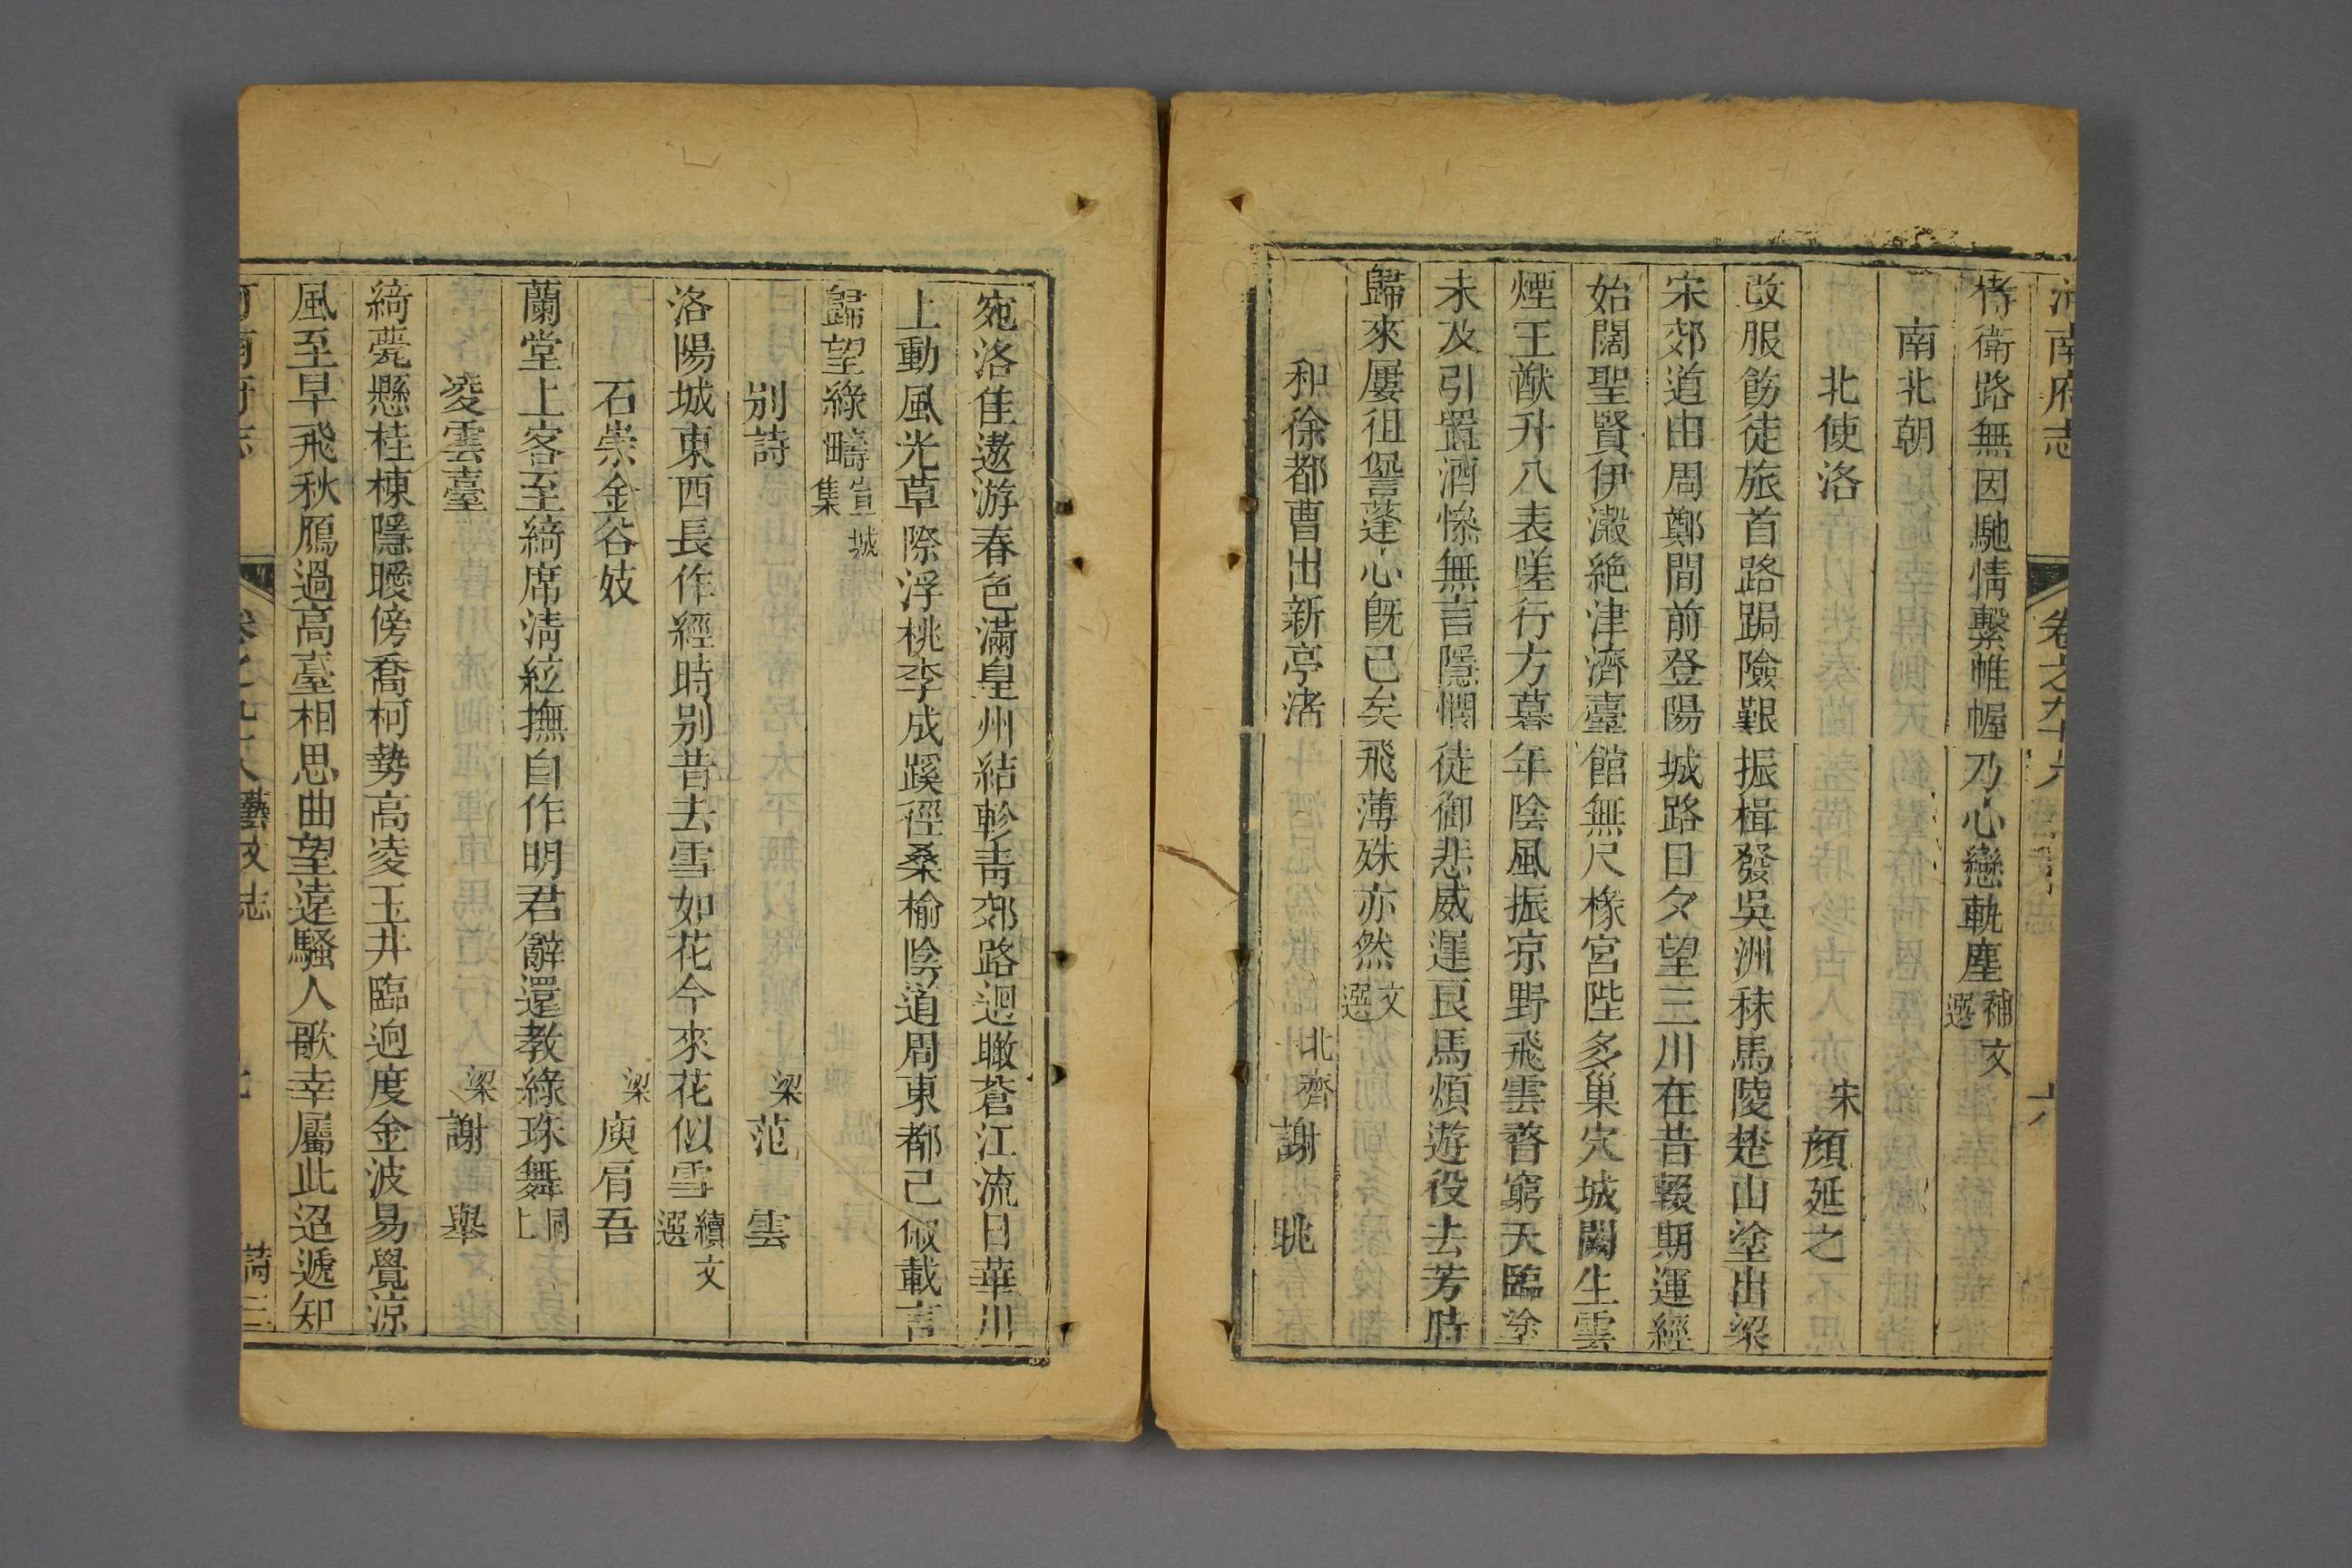 河南府志 卷之九十六 六
侍衛路無因馳情繫帷幄乃心戀軌塵補文選
南北朝
北使洛 宋顏延之
改服飭徒旅首路跼險艱振楫發吳洲秣馬陵楚山塗出梁
宋郊道由周鄭間前登陽城路日夕望三川在昔輟期運經
始闊聖賢伊瀔絶津濟臺館無尺椽宮陛多巢穴城闕生雲
煙王猷升八表嗟行方暮年陰風振凉野飛雲瞀窮天臨塗
未及引置酒慘無言隱憫徒御悲威遲良馬煩遊役去芳時
歸來屢徂諐蓬心旣已矣飛薄殊亦然文選
和徐都曹出新亭渚 北齊謝眺
宛洛佳遨游春色滿皇州結軫青郊路迥瞰蒼江流日華川
上動風光草際浮桃李成蹊徑桑榆陰道周東都已俶載言
歸望綠疇宣城集
别詩 梁范雲
洛陽城東西長作經時别昔去雪如花今來花似雪續文選
石崇金谷妓 梁庾肩吾
蘭堂上客至綺席淸絃撫自作明君辭還教綠珠舞同上
凌雲臺 梁謝舉
綺甍懸桂棟隱曖傍喬柯勢高凌玉井臨迥度金波易覺凉
風至早飛秋鴈過高臺相思曲望遠騷人歌幸屬此迢遞知
河南府志 卷之九十六藝文志 七 詩三